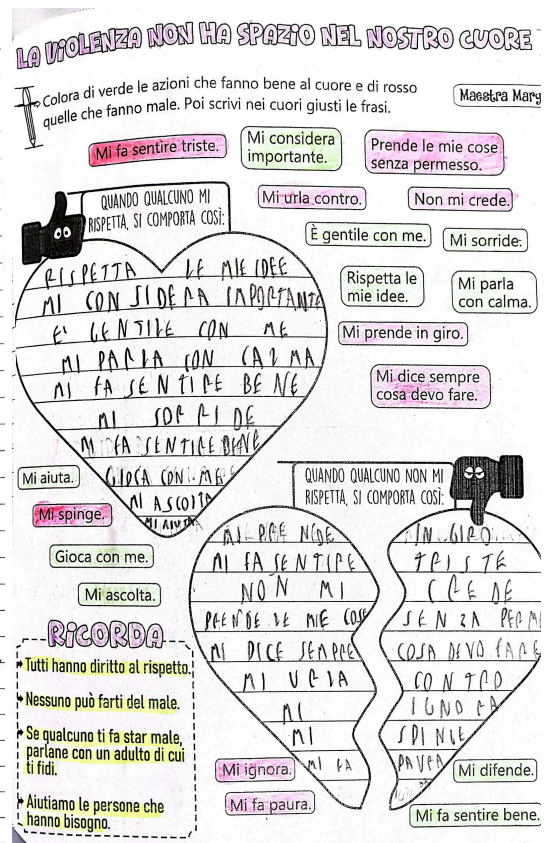 LA VIOLENZA NON HA SPAZIO NEL NOSTRO CUORE
Colora di verde le azioni che fanno bene al cuore e di rosso
quelle che fanno male. Poi scrivi nei cuori giusti le frasi.
Maestra Mary
Mi fa sentire triste.
Mi considera
importante.
Prende le mie cose
senza permesso.
Mi urla contro.
Non mi crede.
È gentile con me.
Mi sorride.
Rispetta le
mie idee.
Mi parla
con calma.
Mi prende in giro.
Mi dice sempre
cosa devo fare.
QUANDO QUALCUNO MI
RISPETTA, SI COMPORTA COSÌ:
RISPETTA LE MIE IDEE
MI CONSIDERA IMPORTANTE
E' GENTILE CON ME
MI PARLA CON CALMA
MI FA SENTIRE BENE
MI SORRIDE
MI FA SENTIRE BENE
GIOCA CON ME
MI ASCOLTA
MI AIUTA
Mi aiuta.
Mi spinge.
Gioca con me.
Mi ascolta.
QUANDO QUALCUNO NON MI
RISPETTA, SI COMPORTA COSÌ:
MI PRENDE IN GIRO
MI FA SENTIRE TRISTE
NON MI CREDE
PRENDE LE MIE COSE SENZA PERME
MI DICE SEMPRE COSA DEVO FARE
MI URLA CONTRO
MI IGNORA
MI SPINGE
MI FA PAURA
RICORDA
Tutti hanno diritto al rispetto.
Nessuno può farti del male.
Se qualcuno ti fa star male,
parlane con un adulto di cui
ti fidi.
Aiutiamo le persone che
hanno bisogno.
Mi ignora.
Mi fa paura.
Mi difende.
Mi fa sentire bene.